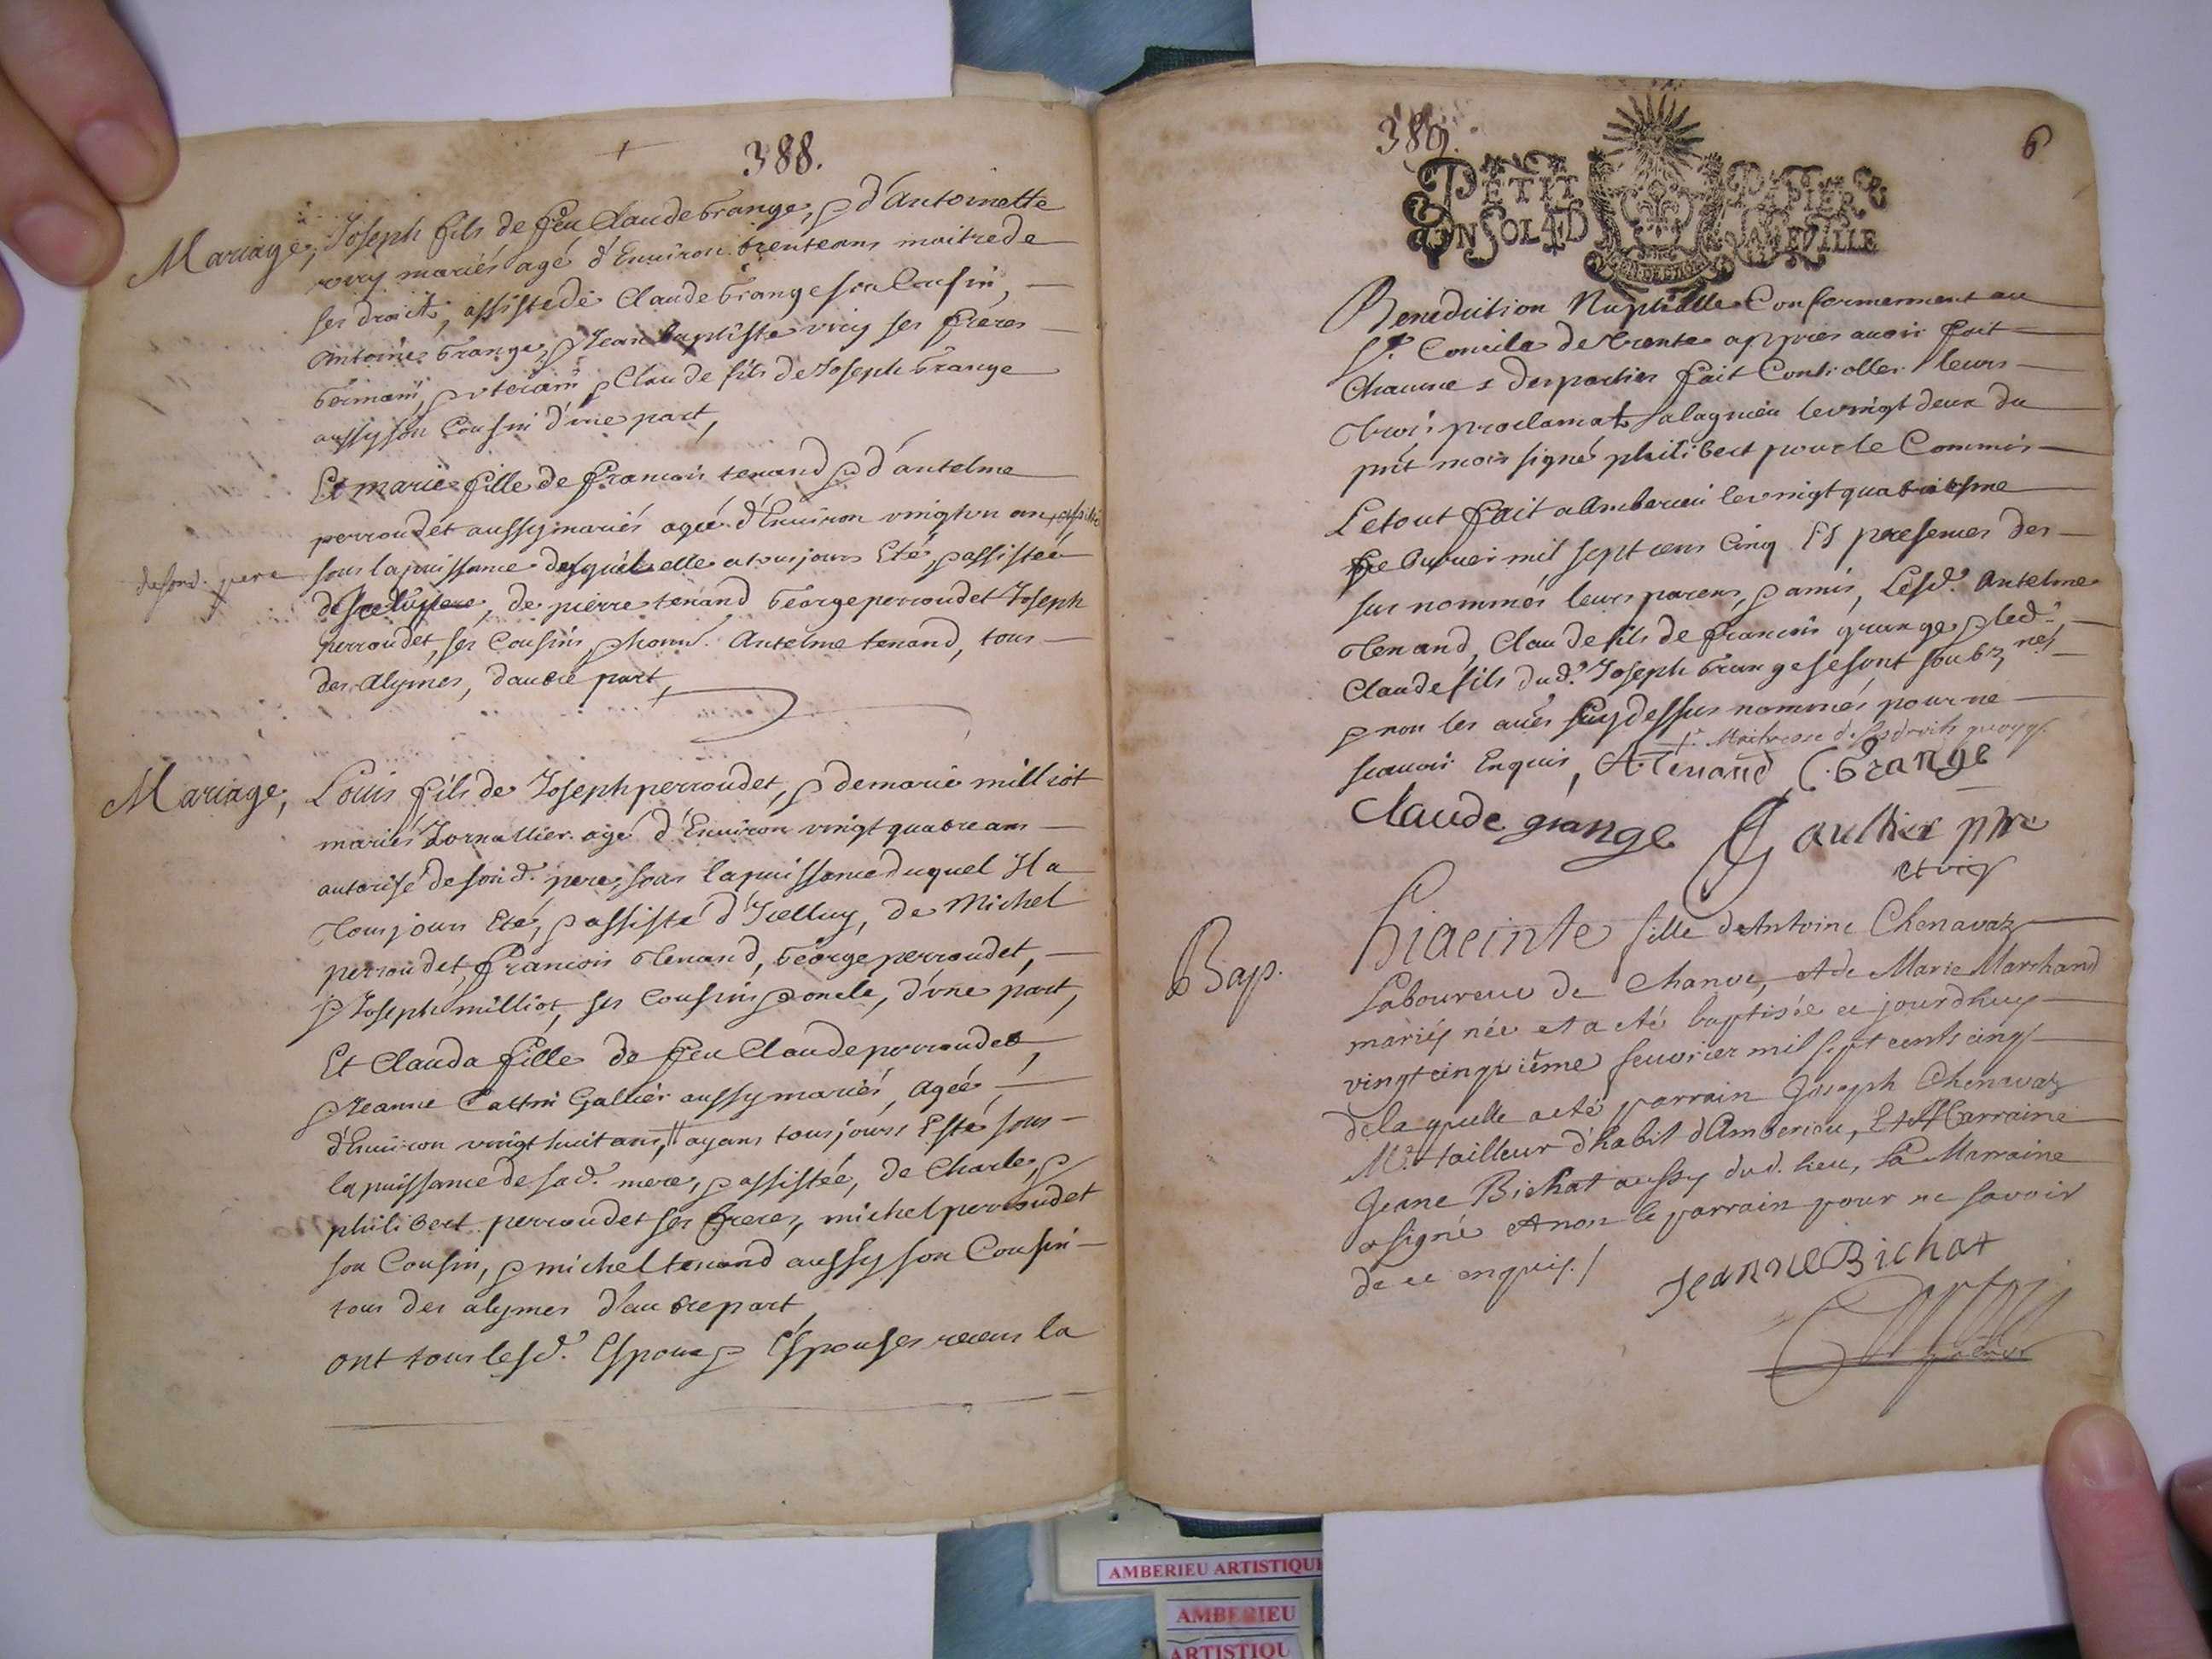 388.
Mariage, Joseph fils de feu Claude Grange, & d'Antoinette
mariés agé d'Environ trente ans maitre de
ses droits, assisté de Claude Grange son Cousin,
Antoine Grange, & Jean baptiste ses freres
Germain, & uterain & Claude fils de Joseph Grange
aussy son Cousin d'une part,
Et marie fille de francois tenand & d'antelme
perroudet aussy mariés agée d'Environ vingt un an
sous la puissance desquels elle a tousjours Eté, & assistée
de sond. pere
de pierre tenand George perroudet Joseph
perroudet, ses Cousins, & honn. Antelme tenand, tous
des Alymes, d'autre part,
Mariage, Louis fils de Joseph perroudet, & de marie milliot
mariés Jornallier agé d'Environ vingt quatre ans
autorisé de sond. pere, sous la puissance duquel Il a
Tousjours Eté, & assisté d'Icelluy, de Michel
perroudet, francois Tenand, George perroudet,
& Joseph milliot, ses Cousins & oncle, d'une part,
Et Clauda fille de feu Claude perroudet,
& Jeanne Gallier aussy mariés, agée,
d'Environ vingt huit ans, ayans tousjours Esté sous
la puissance de sad. mere, & assistée, de Charle, &
philibert perroudet ses freres, michel perroudet
son Cousin, & michel tenand aussy son Cousin
tous des alymes d'autre part,
ont tous lesd. Espoux & Espouses receus la
389.
6
PETIT PAPIER
UN SOL 4 D LA FEUILLE
Benediction Nuptialle Conformement au
St. Concile de Trente appres avoir fait
Chacune des parties fait Controller leurs
Trois proclamat. a lagnieu le vingt deux du
pnt mois signé philibert pour le Commis
Le tout fait a Amberieu le vingt quatriesme
feuvrier mil sept cens Cinq Es presences des
sus nommés leurs parens, & amis, Lesd. Antelme
Tenand, Claude fils de francois grange & led.
Claude fils dud. Joseph Grange se sont soubz nés
& non les autres cy dessus nommés pour ne
Maitresse de ses droits
scavoir Enquis, A Tenand C. Grange
Claude grange Gaultier ptre
et vic
Bap. Hiacinte fille d'Antoine Chenavaz
Laboureur de Chanve, et de Marie Marchand
mariés née et a eté baptisée ce jourdhuy
vingtcinquième feuvrier mil sept cents cinq
de laquelle a eté parrain Joseph Chenavaz
Mre tailleur d'habit d'Amberieu, Et Marraine
Jeane Bichat aussy dud. lieu, la Marraine
a signé et non le parrain pour ne savoir
de ce enquis./
Jeanne Bichat
AMBERIEU ARTISTIQUE
AMBERIEU
ARTISTIQU